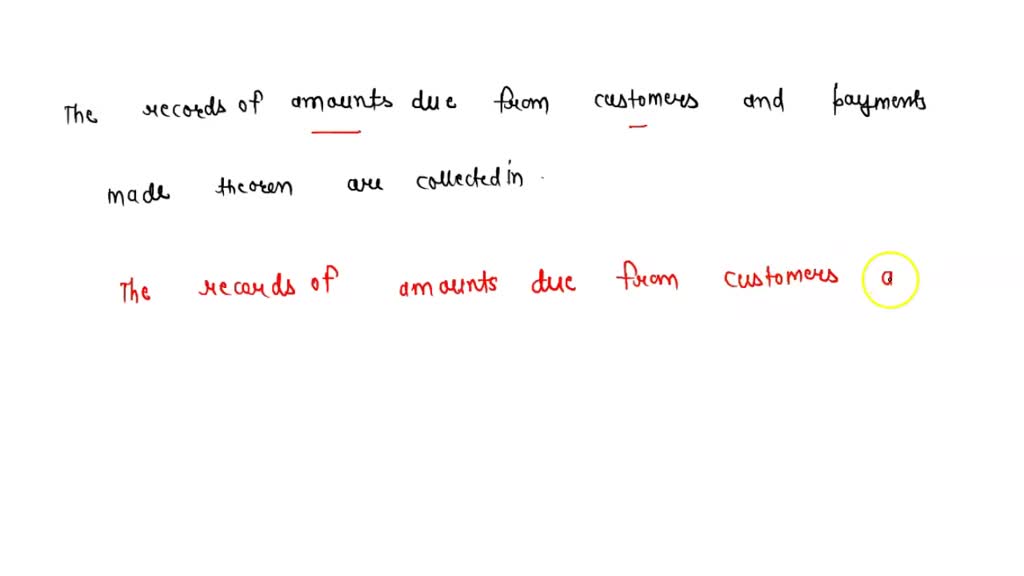 The records of amounts due from customers and payments
made theoren are collected in .
The records of amounts due from customers a